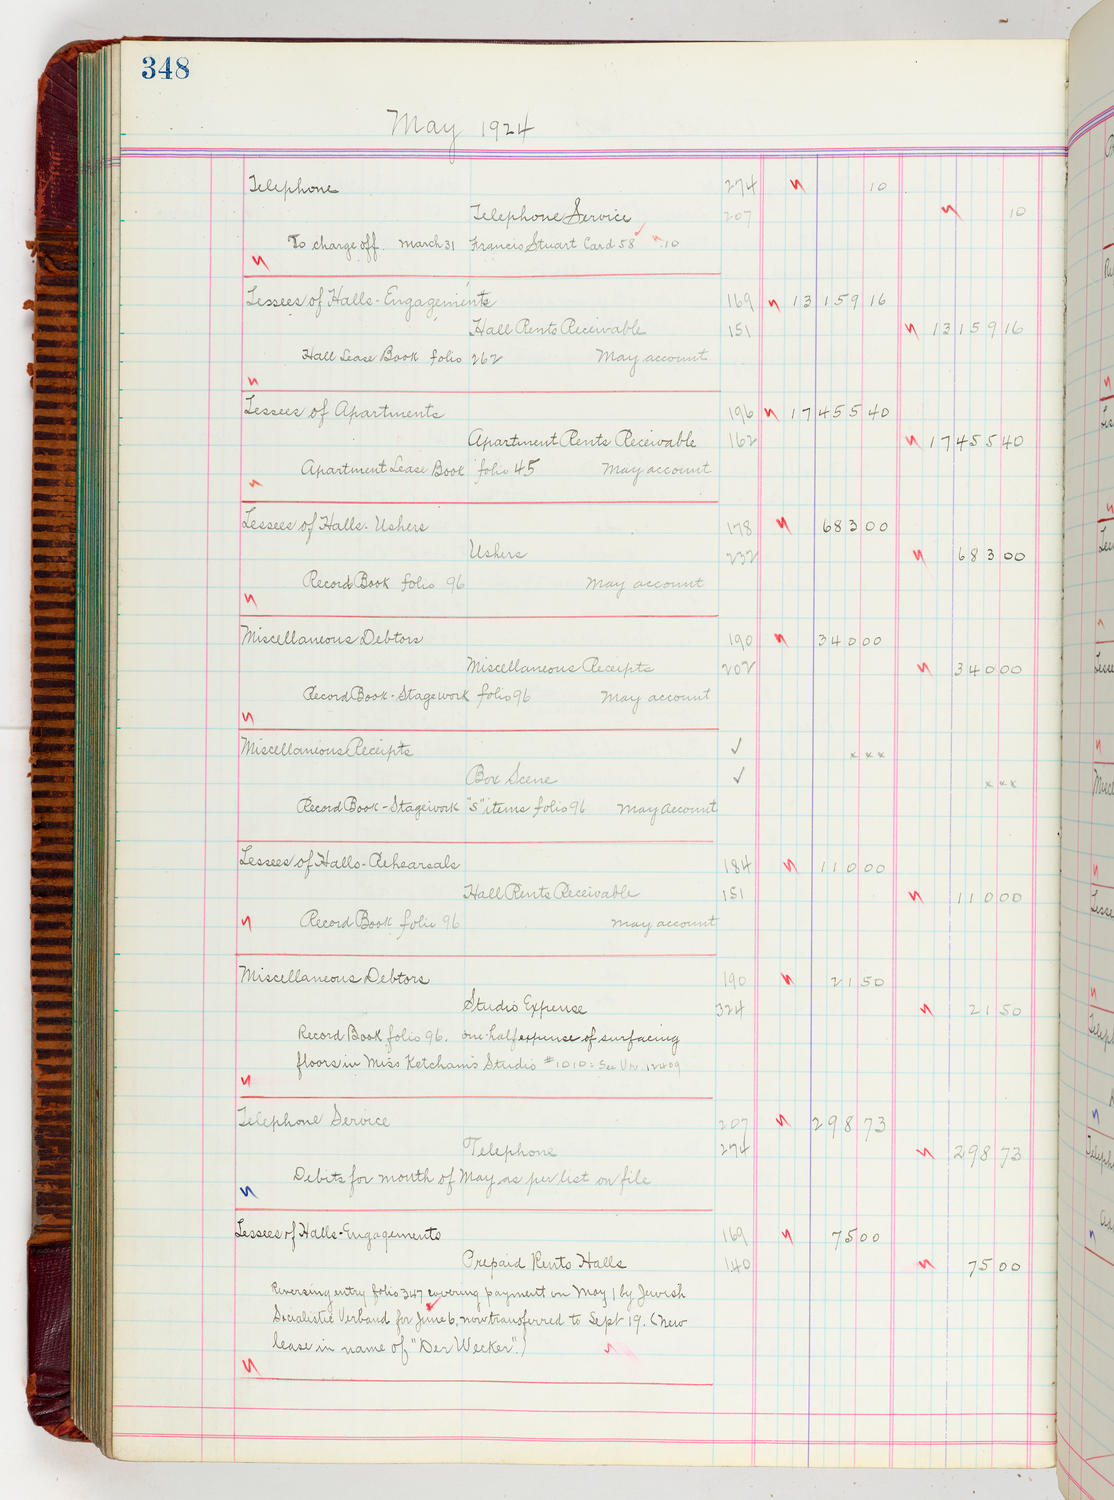 348
May 1924
Telephone 274 10
Telephone Service 207 10
To charge off. March 31 Francis Stuart Card 58 .10
Lessees of Halls - Engagements 169 13 159 16
Hall Rents Receivable 151 13 159 16
Hall Lease Book folio 262 May account
Lessees of Apartments 196 17 455 40
Apartment Rents Receivable 162 17 455 40
Apartment Lease Book folio 45 May account
Lessees of Halls - Ushers 178 683 00
Ushers 232 683 00
Record Book folio 96 May account
Miscellaneous Debtors 190 340 00
Miscellaneous Receipts 202 340 00
Record Book - Stagework folio 96 May account
Miscellanious Receipts ✓ x x x
Box Scene ✓ x x x
Record Book - Stagework "S" items folio 96 May Account
Lessees of Halls - Rehearsals 184 110 00
Hall Rents Receivable 151 110 00
Record Book folio 96 May account
Miscellaneous Debtors 190 21 50
Studio Expense 324 21 50
Record Book folio 96. one-half expense of surfacing
floors in Miss Ketcham's Studio #1010: See Vu. 12409
Telephone Service 207 298 73
Telephone 274 298 73
Debits for month of May as per list on file
Lessees of Halls - Engagements 169 75 00
Prepaid Rents Halls 140 75 00
Reversing entry folio 347 covering payment on May 1 by Jewish
Socialistic Verband for June 6, now transferred to Sept 19. (New
lease in name of "Der Wecker".)